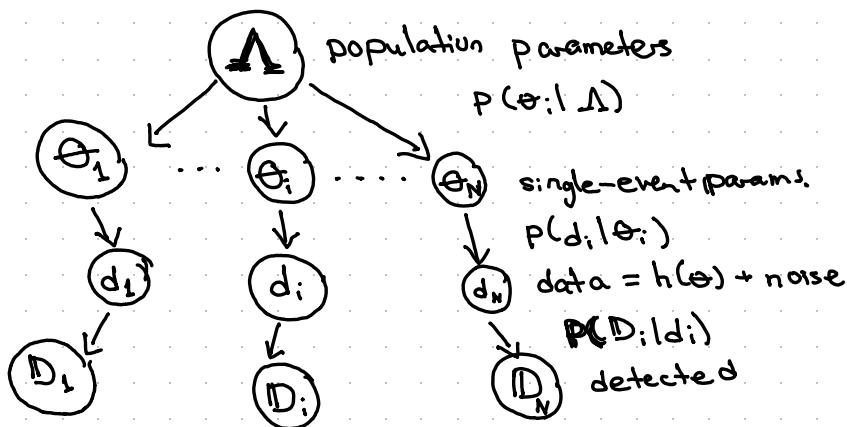 Λ population parameters
p(θi | Λ)
θ1 .... θi ..... θN single-event params.
p(di | θi)
d1 di dN data = h(θ) + noise
P(𝔻i | di)
𝔻1 𝔻i 𝔻N detected